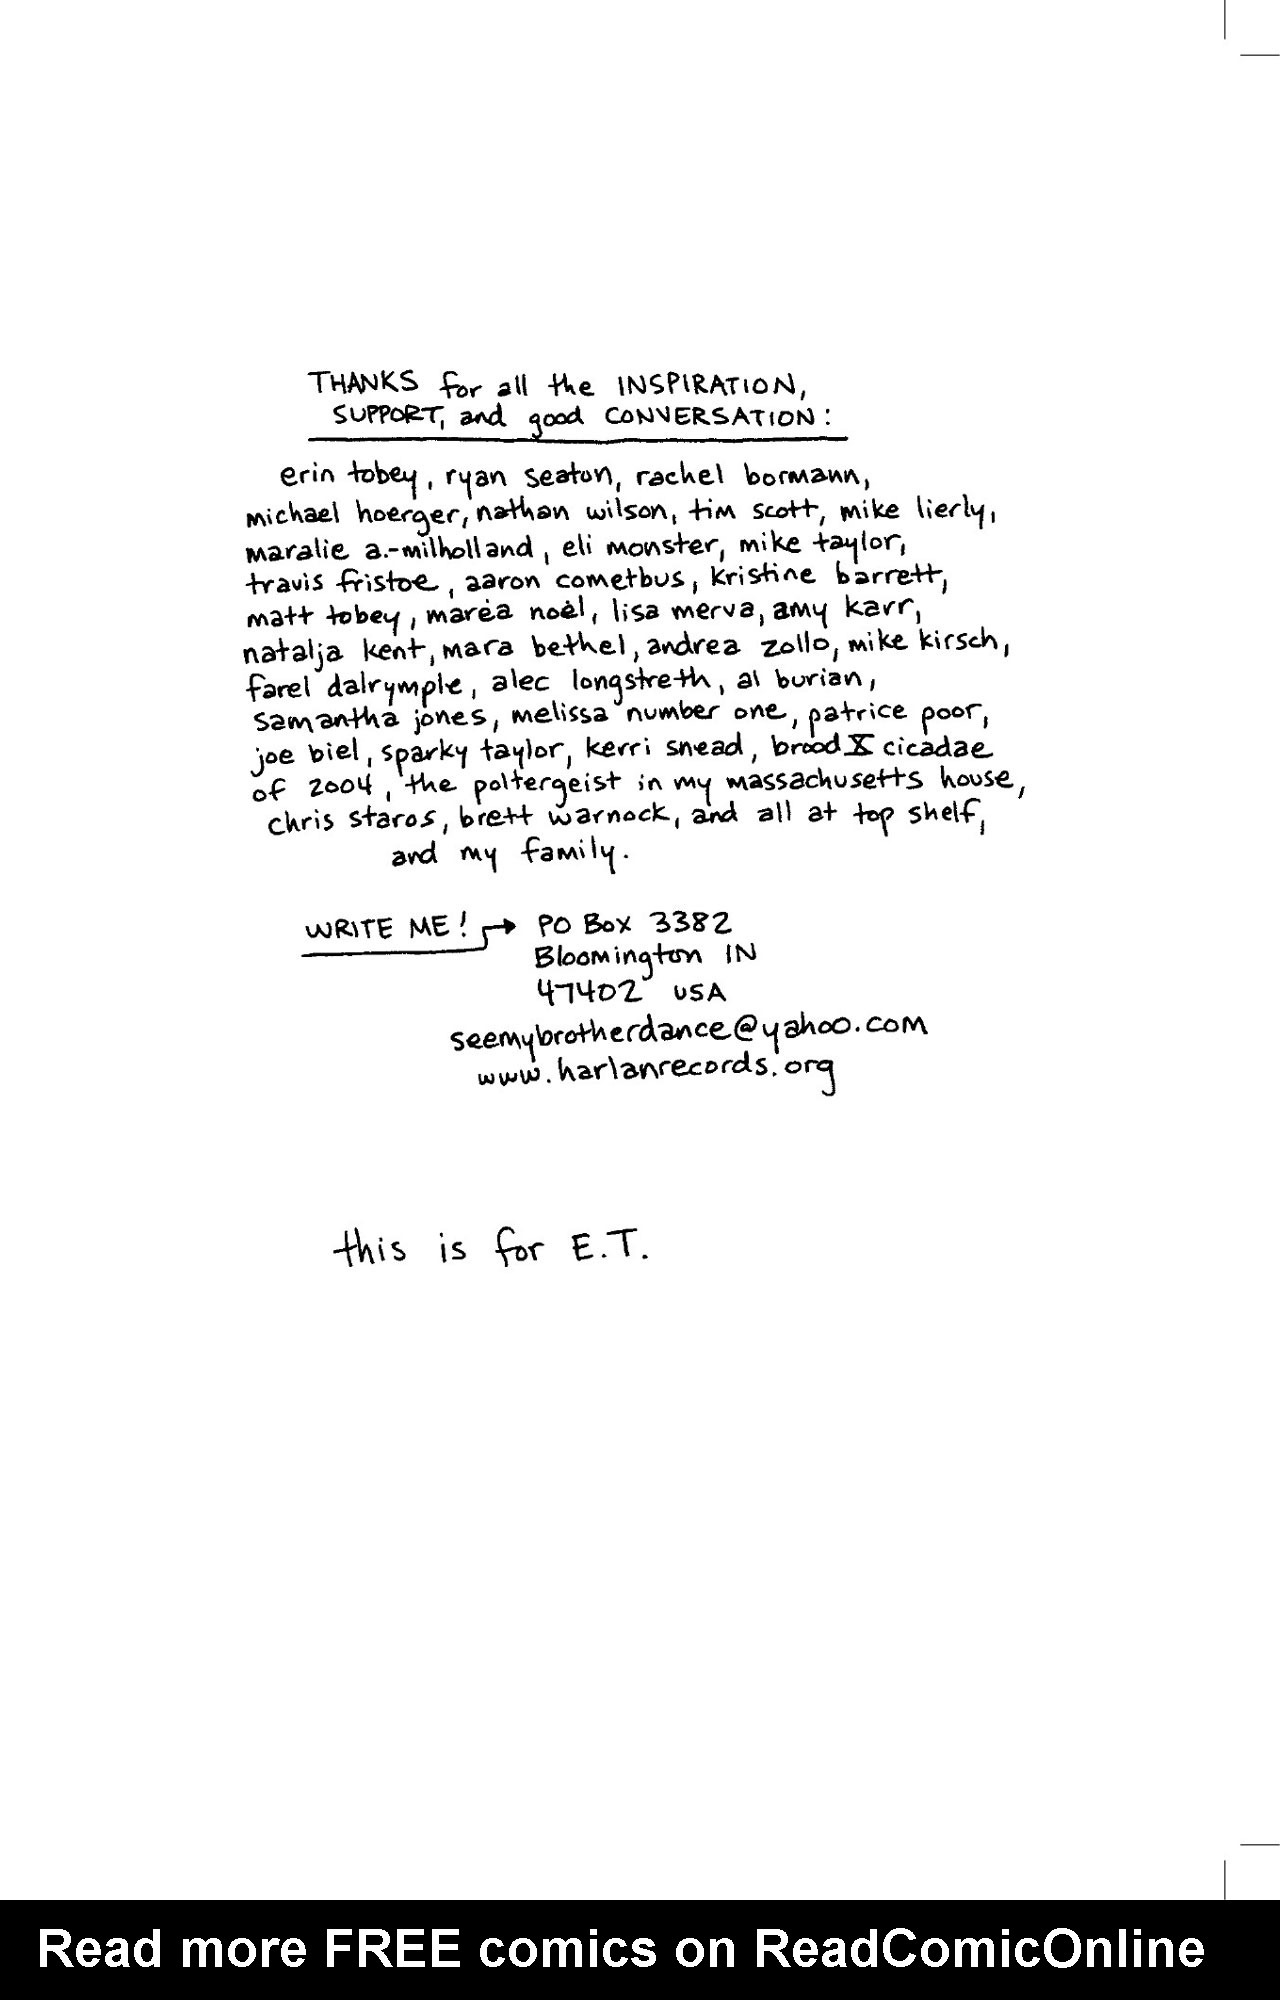 THANKS for all the INSPIRATION,
SUPPORT, and good CONVERSATION:
erin tobey, ryan seaton, rachel bormann,
michael hoerger, nathan wilson, tim scott, mike lierly,
maralie a.-milholland, eli monster, mike taylor,
travis fristoe, aaron cometbus, kristine barrett,
matt tobey, marėa noėl, lisa merva, amy karr,
natalja kent, mara bethel, andrea zollo, mike kirsch,
farel dalrymple, alec longstreth, al burian,
samantha jones, melissa number one, patrice poor,
joe biel, sparky taylor, kerri snead, brood X cicadae
of 2004, the poltergeist in my massachusetts house,
chris staros, brett warnock, and all at top shelf,
and my family.
WRITE ME! → PO Box 3382
Bloomington IN
47402 USA
seemybrotherdance@yahoo.com
www.harlanrecords.org
this is for E.T.
Read more FREE comics on ReadComicOnline